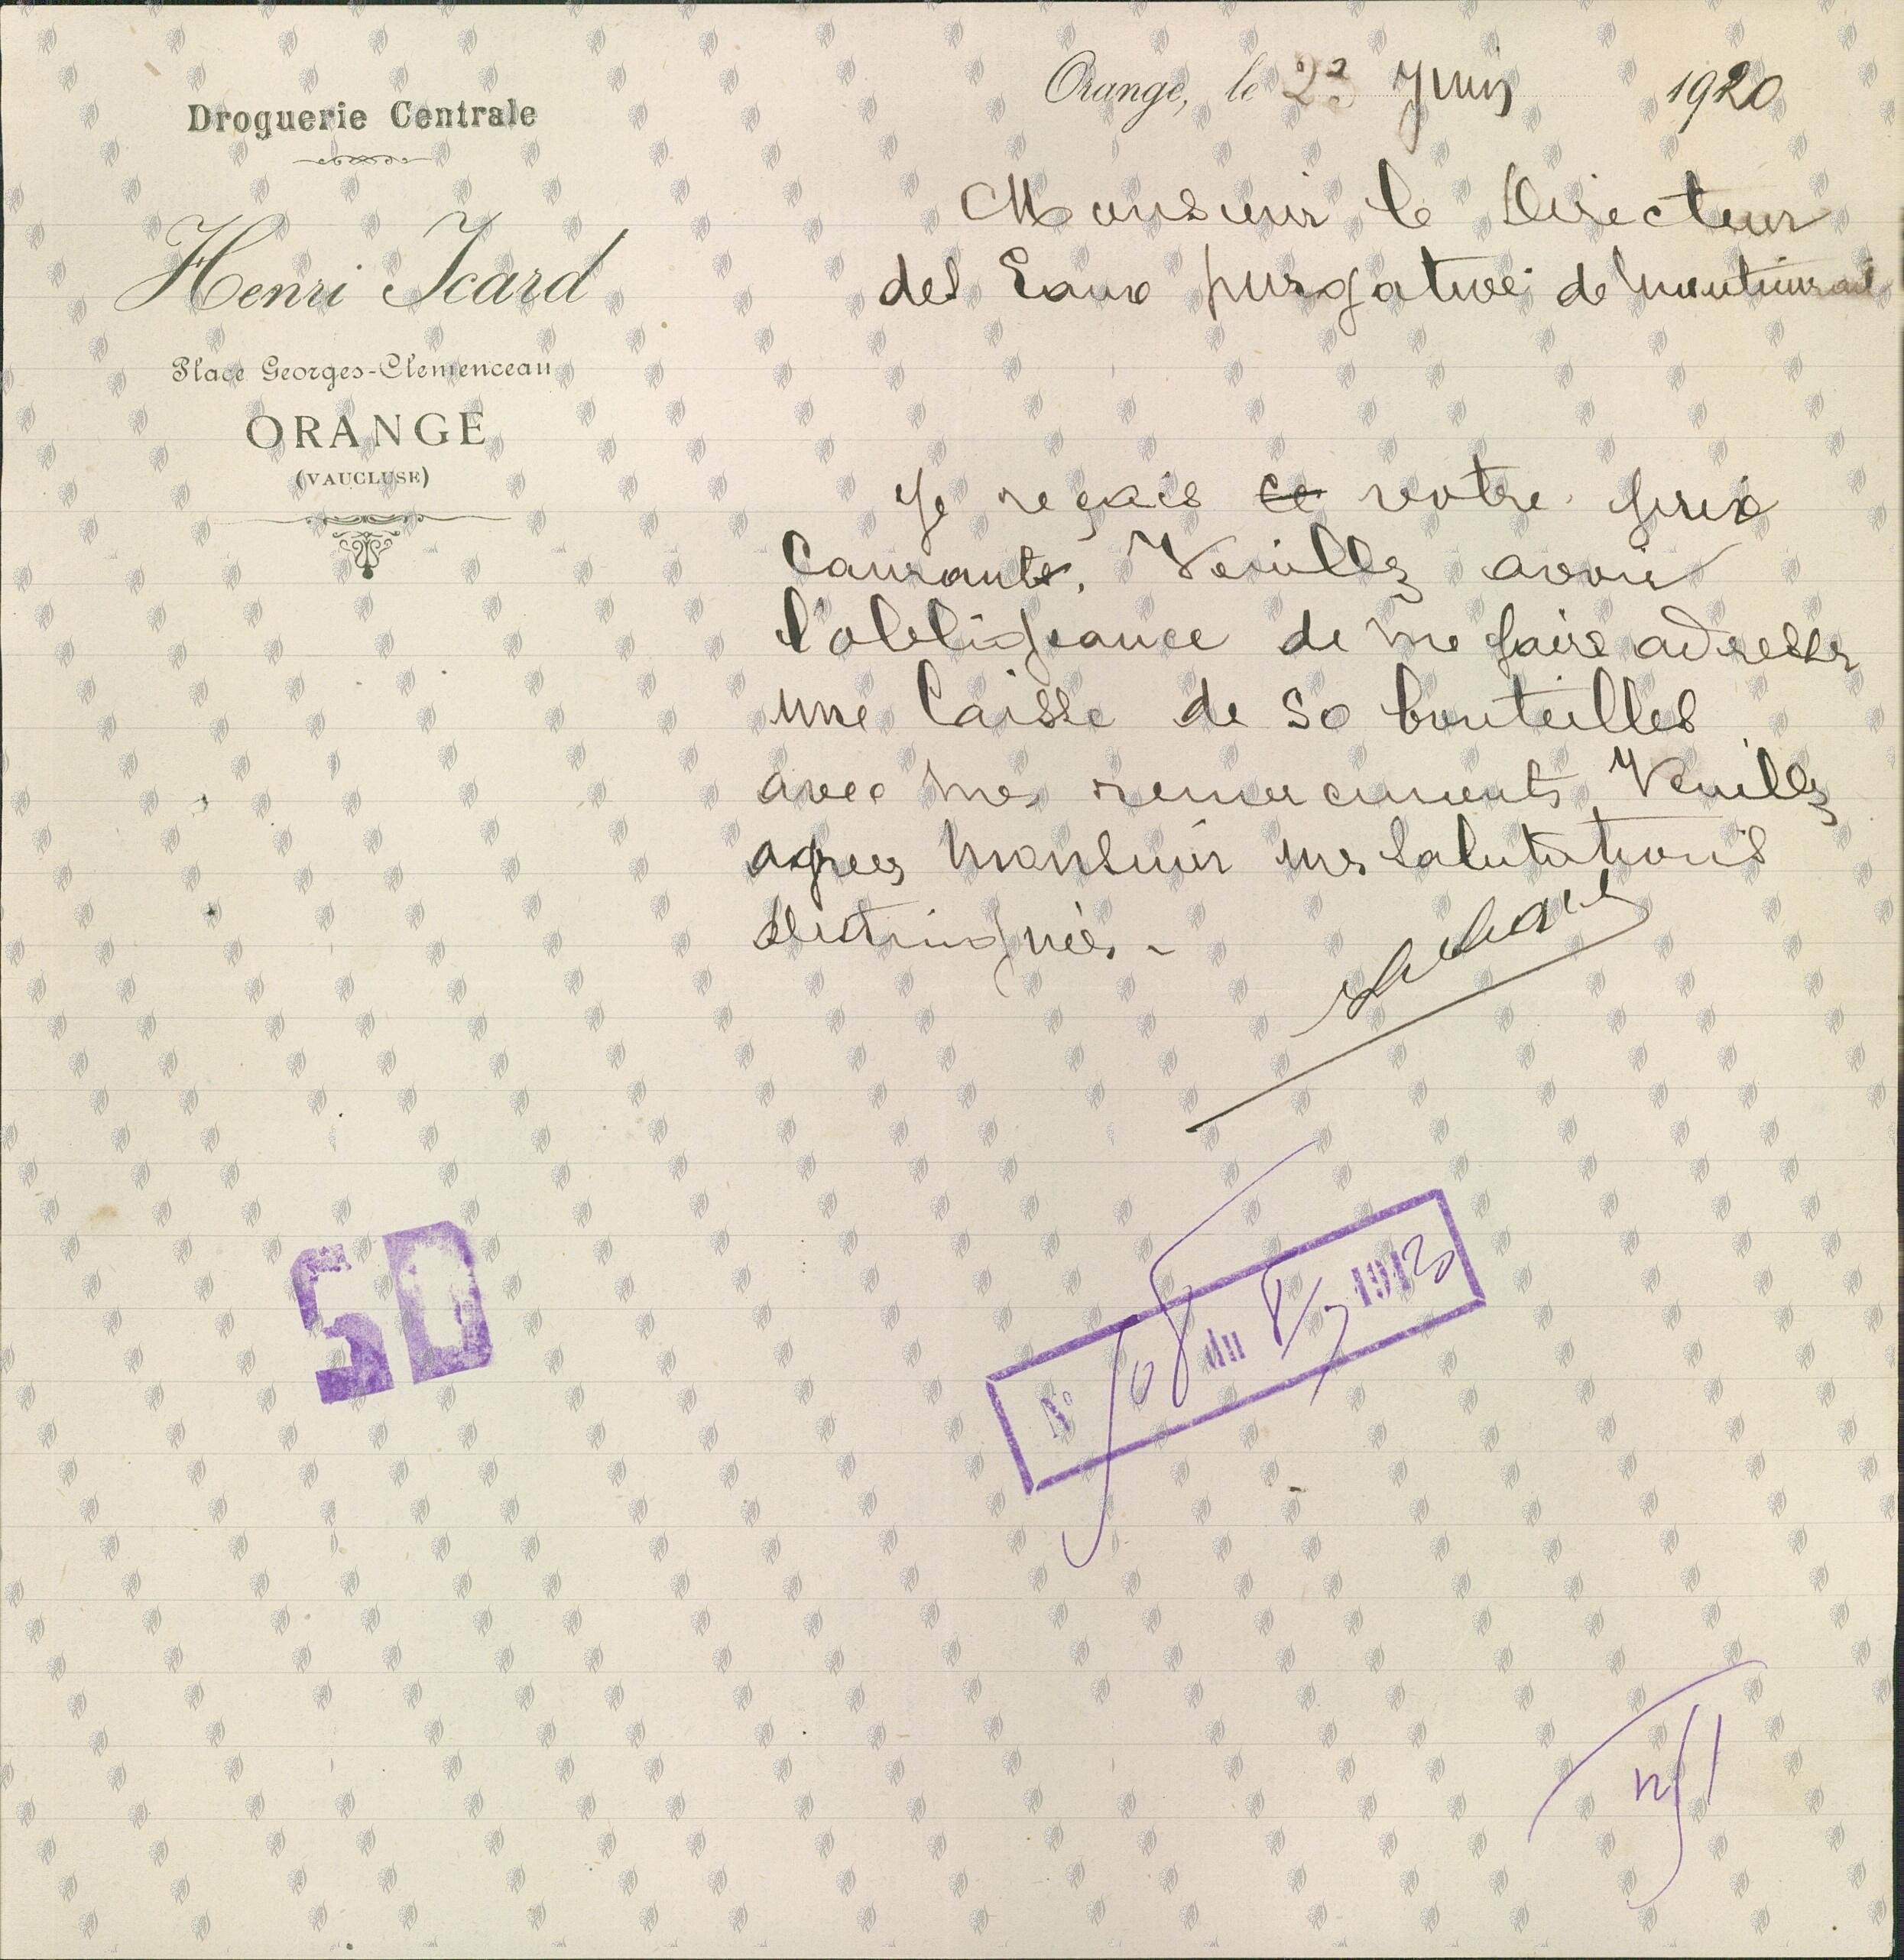 Droguerie Centrale
Henri Icard
Place Georges-Clemenceau
ORANGE
(VAUCLUSE)
Orange, le 23 Juin 1920
Monsieur le Directeur
des Eaux purgative de montmirail
Je reçois ce votre prix
Courant. Veuillez avoir
l'obligeance de me faire adresser
une Caisse de 50 bouteilles
avec mes remerciements Veuillez
agreer monsieur mes Salutations
distingués. -
50
N° du 8/7 191